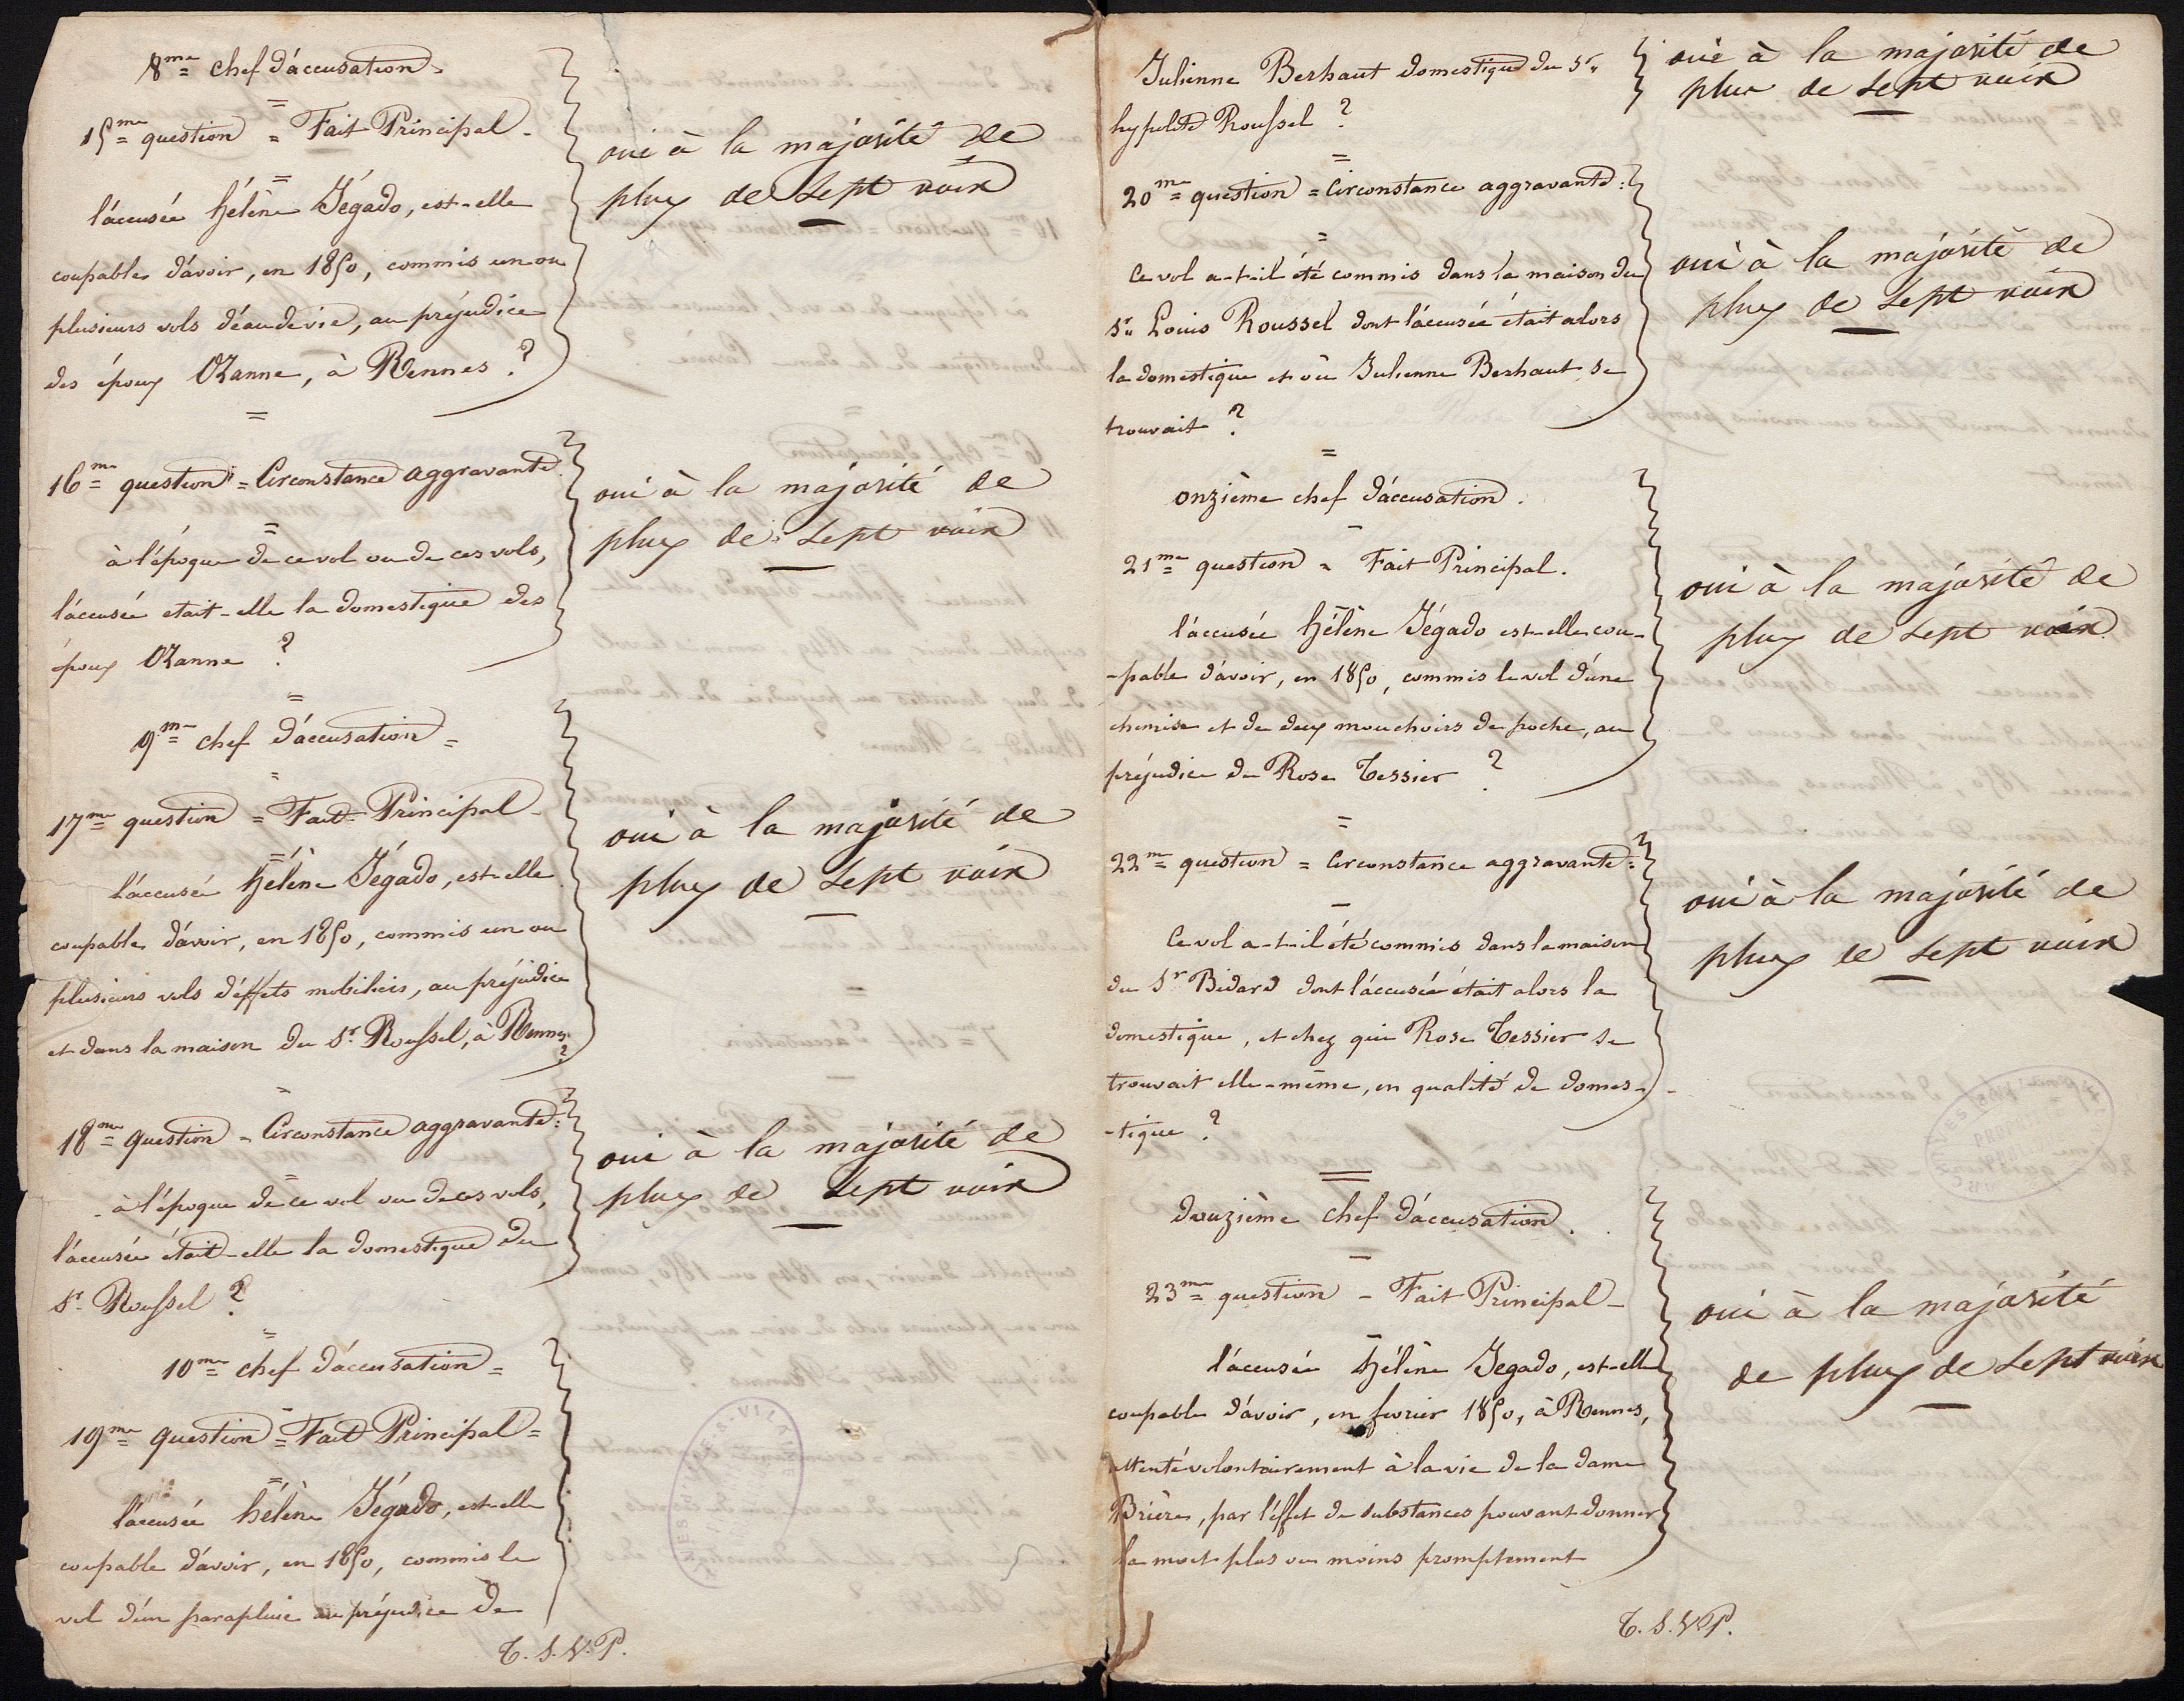 8me chef d'accusation =
15me question = Fait Principal -
l'accusée hélène Jégado, est-elle
coupable d'avoir, en 1850, commis un ou
plusieurs vols d'eau de vie, au préjudice
des époux Ozanne, à Rennes ?
oui à la majorité de
plus de sept voix
16me question = Circonstance aggravante
à l'époque de ce vol ou de ces vols,
l'accusée etait-elle la domestique des
époux Ozanne ?
oui à la majorité de
plus de sept voix
9me chef d'accusation =
17me question = Fait Principal -
l'accusée hélène Jégado, est-elle
coupable d'avoir, en 1850, commis un ou
plusieurs vols d'effets mobiliers, au préjudice
et dans la maison du Sr Roussel, à Rennes ?
oui à la majorité de
plus de sept voix
18me question - Circonstance aggravante =
à l'époque de ce vol ou de ces vols,
l'accusée était-elle la domestique du
Sr Roussel ?
oui à la majorité de
plus de sept voix
10me chef d'accusation =
19me question = Fait Principal =
l'accusée hélène Jégado, est-elle
coupable d'avoir, en 1850, commis le
vol d'un parapluie au préjudice de
T. S. V. P.
Julienne Berhaut domestique du Sr
hypolite Roussel ?
oui à la majorité de
plus de sept voix
20me question = Circonstance aggravante =
Ce vol a-t-il été commis dans la maison du
Sr Louis Roussel dont l'accusée était alors
la domestique et où Julienne Berhaut se
trouvait ?
oui à la majorité de
plus de sept voix
onzième chef d'accusation.
21me question = Fait Principal.
l'accusée hélène Jégado est-elle cou-
-pable d'avoir, en 1850, commis le vol d'une
chemise et de deux mouchoirs de poche, au
préjudice de Rose Tessier ?
oui à la majorité de
plus de sept voix
22me question = Circonstance aggravante =
Ce vol a-t-il été commis dans la maison
du Sr Bidard dont l'accusée était alors la
domestique, et chez qui Rose Tessier se
trouvait elle-même, en qualité de domes-
-tique ?
oui à la majorité de
plus de sept voix
douzième chef d'accusation.
23me question - Fait Principal -
l'accusée hélène Jegado, est-elle
coupable d'avoir, en fevrier 1850, à Rennes,
attenté volontairement à la vie de la dame
Brière, par l'effet de substances pouvant donner
la mort plus ou moins promptement
oui à la majorité
de plus de sept voix
T. S. V. P.